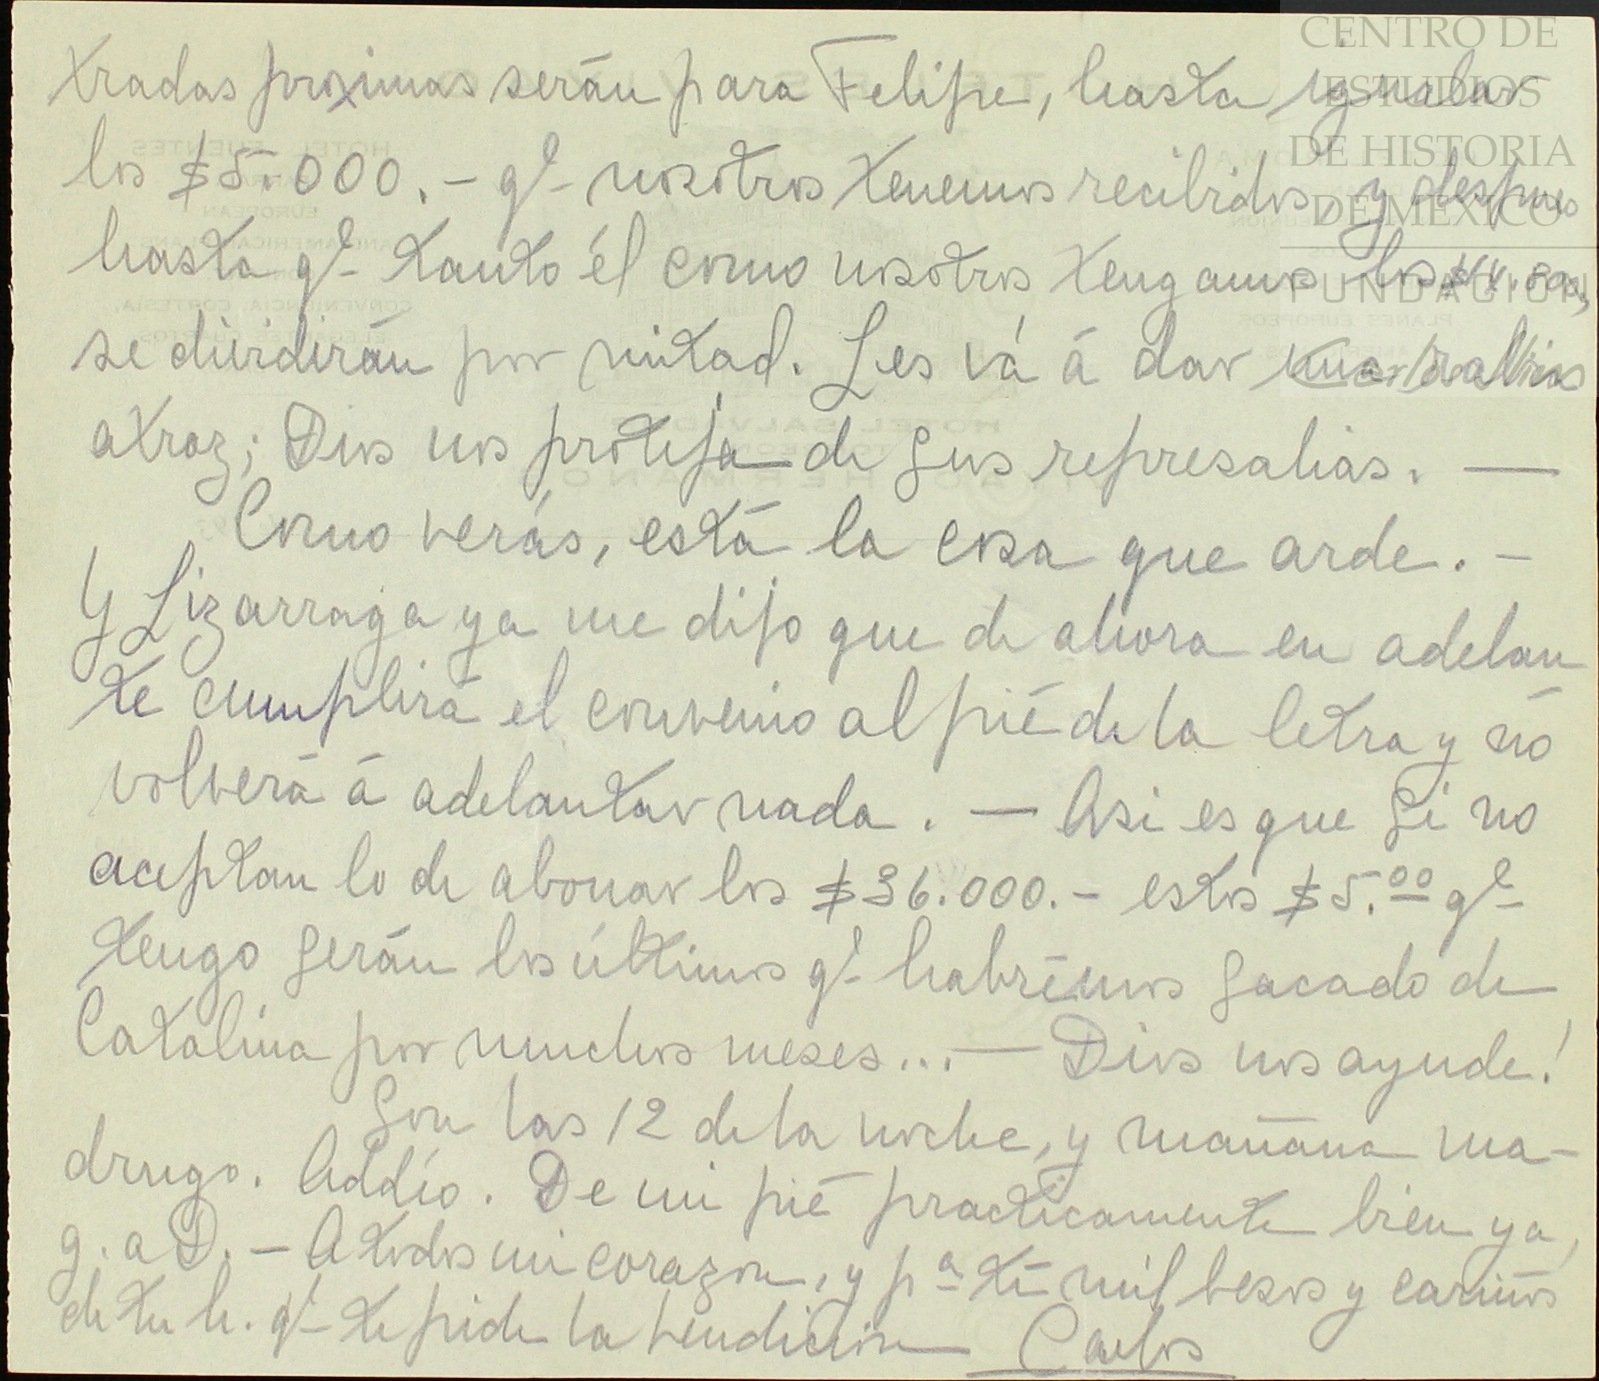 CENTRO DE
ESTUDIOS
DE HISTORIA
DE MEXICO
FUNDACION
tradas proximas serán para Felipe, hasta igualar
los $5.000.- qe nosotros tenemos recibidos, y despues
hasta qe tanto él como nosotros tengamos los
se dividirán por mitad. Les vá á dar una
atroz; Dios nos proteja de sus represalias. —
Como verás, está la cosa que arde. -
Y Lizarraga ya me dijo que de ahora en adelan
te cumplirá el convenio al pié de la letra y nó
volverá á adelantar nada. — Asi es que si no
aceptan lo de abonar los $36.000.- estos $5.00 qe
tengo serán los últimos qe habrémos sacado de
Catalina por muchos meses... — Dios nos ayude!
Son las 12 de la noche, y mañana ma-
drugo. Addío. De mi pié practicamente bien ya,
g. a D. - A todos mi corazon, y pa tí mil besos y cariños
de tu h. qe te pide la bendicion Carlos